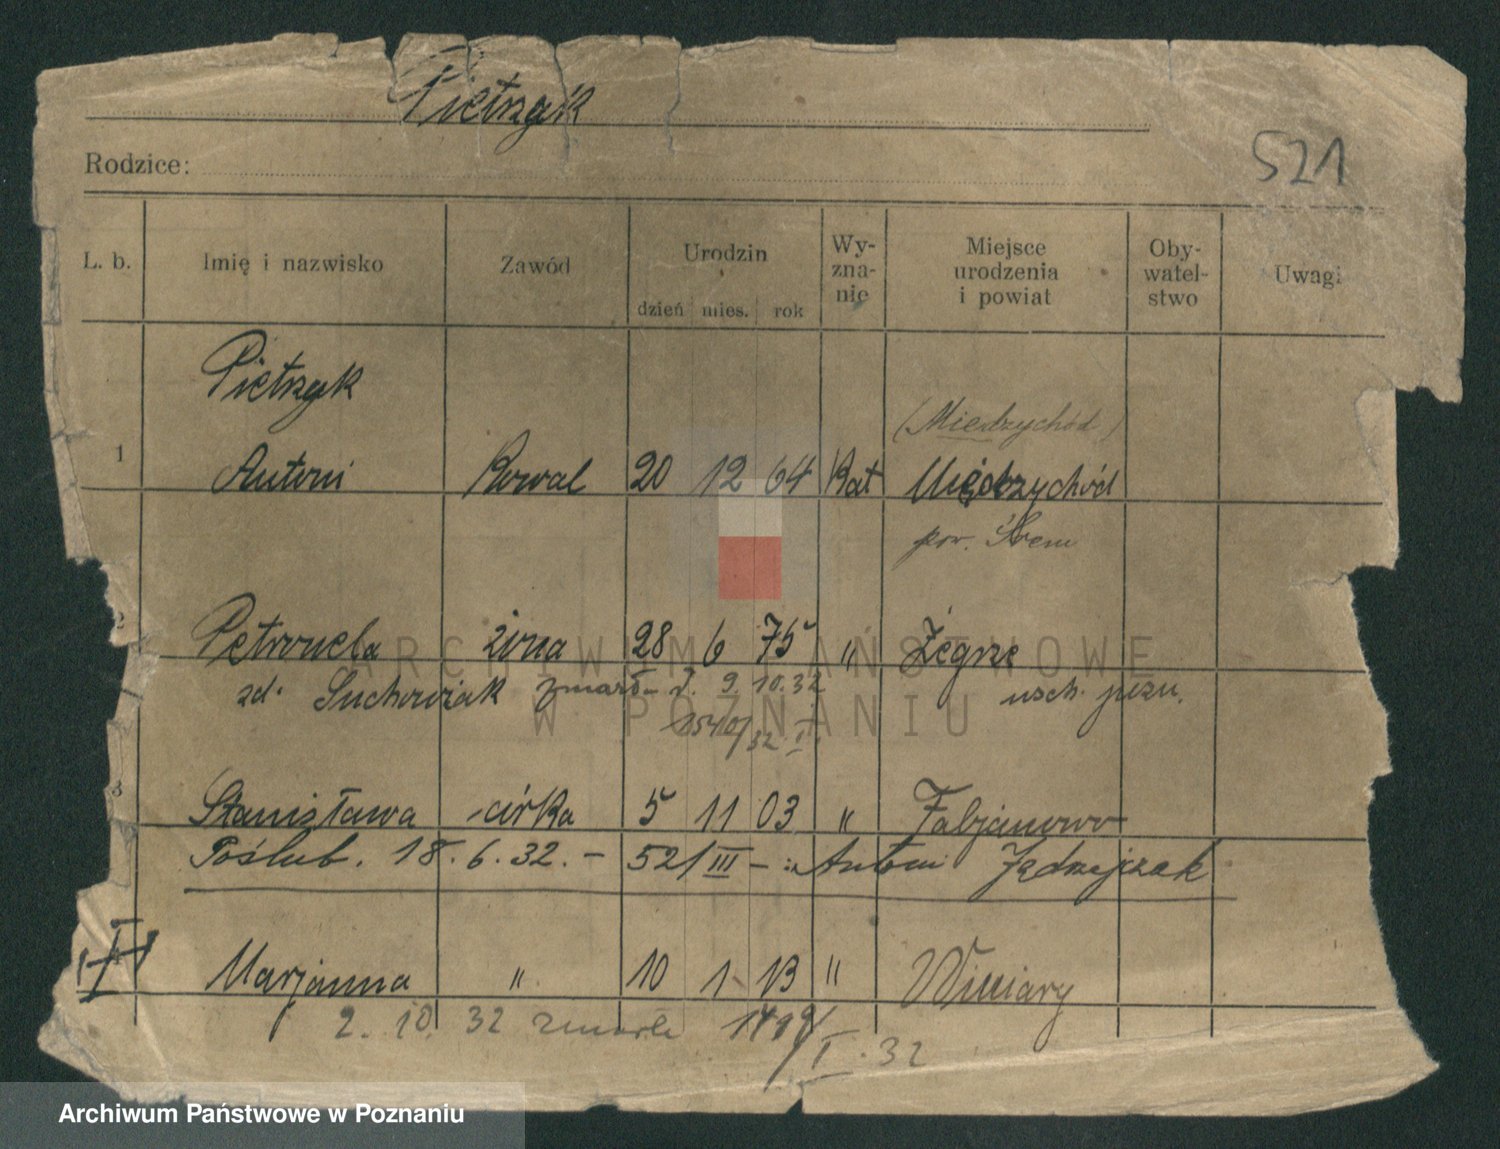 Pietrzyk
Rodzice:
521
L. b. Imię i nazwisko Zawód Urodzin dzień mies. rok Wy-zna-nie Miejsce urodzenia i powiat Oby-watel-stwo Uwagi
Pietrzyk
(Miedzychód)
1 Antoni Kowal 20 12 64 Kat Międzychód
pow. Śrem
2 Petronela żona 28 6 75 " Żegrze
zd. Suchowiak zmarł- d. 9. 10. 32
1540/32 I.
3 Stanisława córka 5 11 03 " Fabjanowo
Poślub. 18. 6. 32. - 521 III - Antoni Jędrzejczak
Marjanna " 10 1 13 " Winiary
2. 10. 32 zmarła
I. 32
ARCHIWUM PAŃSTWOWE
W POZNANIU
Archiwum Państwowe w Poznaniu